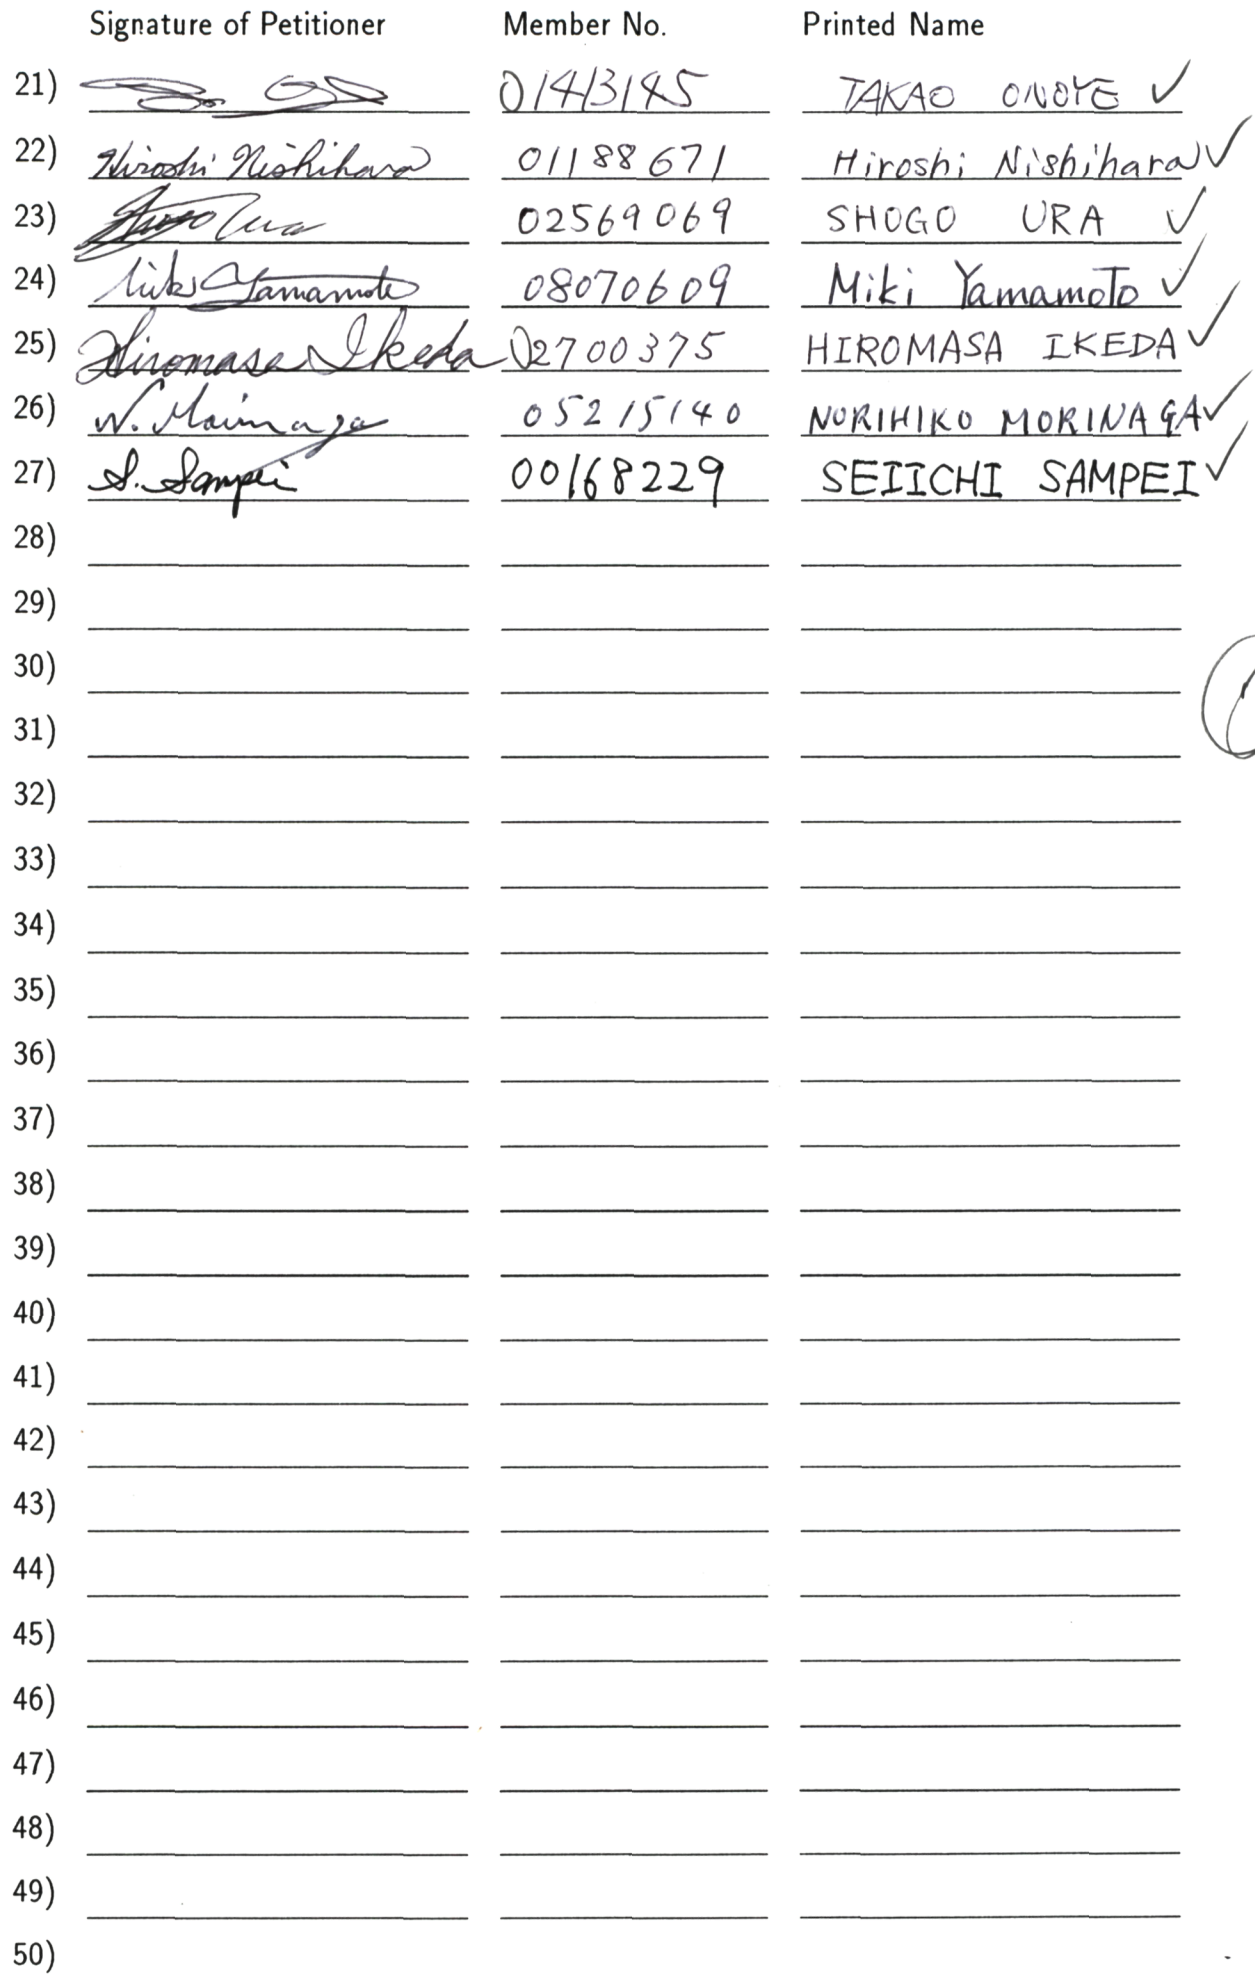 Signature of Petitioner Member No. Printed Name
21) 01413145 TAKAO ONOYE ✓
22) Hiroshi Nishihara 01188671 Hiroshi Nishihara ✓
23) Shogo Ura 02569069 SHOGO URA ✓
24) Miki Yamamoto 08070609 Miki Yamamoto ✓
25) Hiromasa Ikeda 02700375 HIROMASA IKEDA ✓
26) N. Morinaga 05215140 NORIHIKO MORINAGA ✓
27) S. Sampei 00168229 SEIICHI SAMPEI ✓
28)
29)
30)
31)
32)
33)
34)
35)
36)
37)
38)
39)
40)
41)
42)
43)
44)
45)
46)
47)
48)
49)
50)